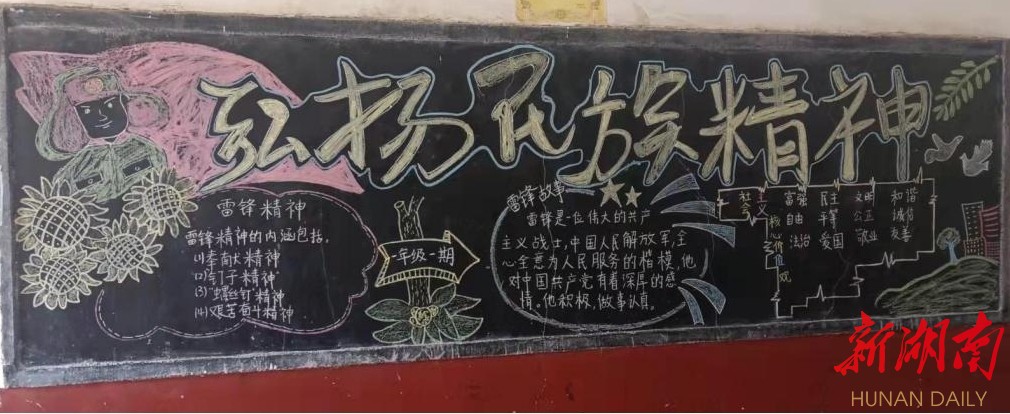 弘扬民族精神
雷锋精神
雷锋精神的内涵包括。
(1)奉献精神
(2)钉子精神
(3)螺丝钉精神
(4)艰苦奋斗精神
一年级一期
雷锋故事
雷锋是一位伟大的共产
主义战士,中国人民解放军,全
心全意为人民服务的楷模,他
对中国共产党有着深厚的感
情。他积极,做事认真。
社会主义
核心价值观
富强 民主 文明 和谐
自由 平等 公正 诚信
法治 爱国 敬业 友善
新湖南
HUNAN DAILY